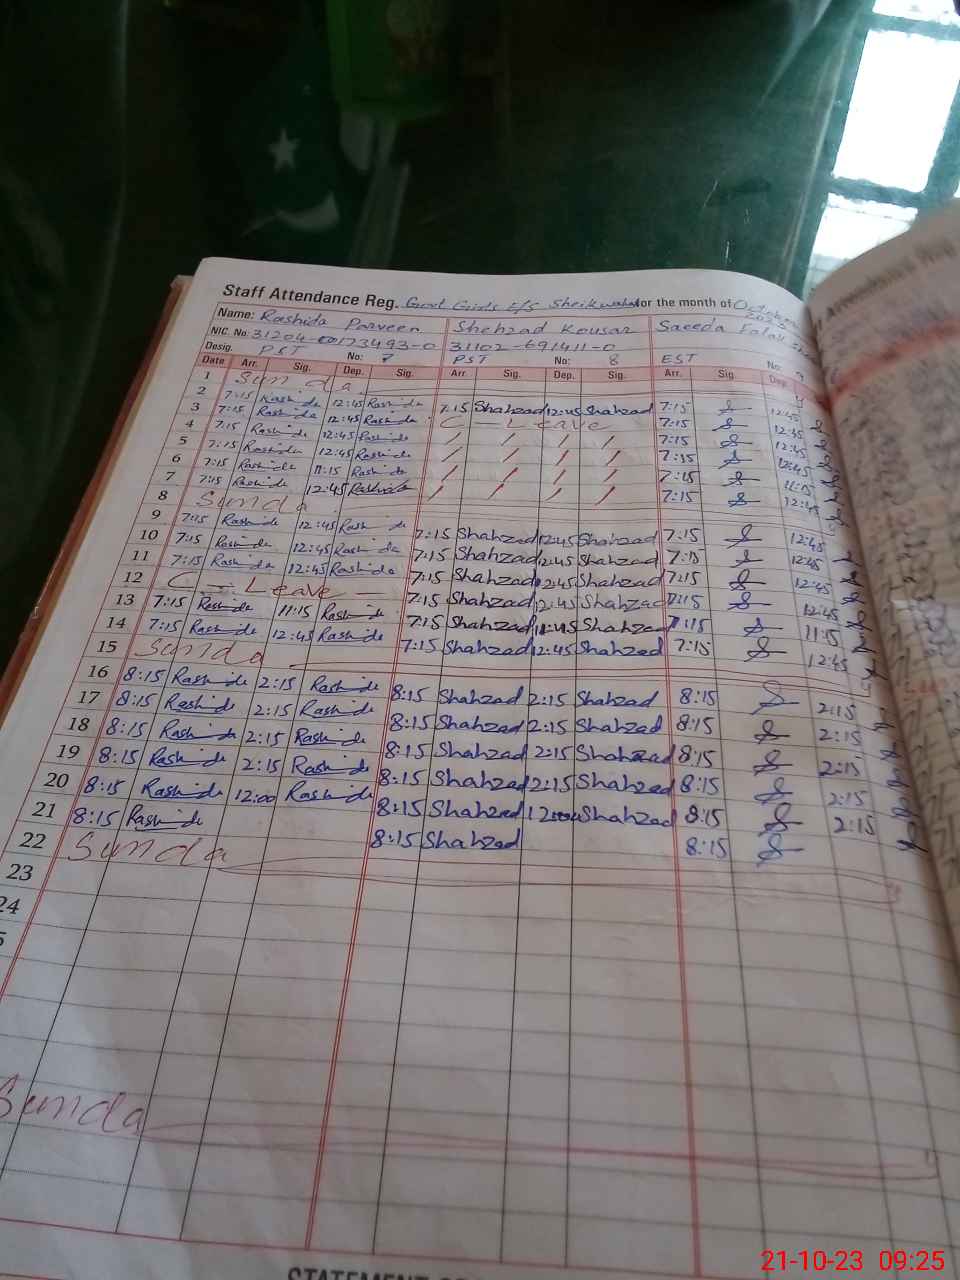 Staff Attendance Reg. Govt Girls E/S Sheikwahan for the month of October
Name: Rashida Parveen Shehzad Kousar Saeeda Falak
NIC. No: 31204- 31102-691411-0
Desig. PST No: 7 PST No: 8 EST No: 9
Date Arr. Sig. Dep. Sig. Arr. Sig. Dep. Sig. Arr. Sig. Dep.
1 Sunda
2 7:15 Rashida 12:45 Rashida 7:15 Shahzad 12:45 Shahzad 7:15 12:45
3 7:15 Rashida 12:45 Rashida C — Leave 7:15 12:45
4 7:15 Rashida 12:45 Rashida 7:15 12:45
5 7:15 Rashida 12:45 Rashida 7:15 12:45
6 7:15 Rashida 11:15 Rashida 7:15 11:15
7 7:15 Rashida 12:45 Rashida 7:15 12:45
8 Sunda
9 7:15 Rashida 12:45 Rashida 7:15 Shahzad 12:45 Shahzad 7:15 12:45
10 7:15 Rashida 12:45 Rashida 7:15 Shahzad 12:45 Shahzad 7:15 12:45
11 7:15 Rashida 12:45 Rashida 7:15 Shahzad 12:45 Shahzad 7:15 12:45
12 C — Leave — 7:15 Shahzad 12:45 Shahzad 7:15 12:45
13 7:15 Rashida 11:15 Rashida 7:15 Shahzad 11:15 Shahzad 7:15 11:15
14 7:15 Rashida 12:45 Rashida 7:15 Shahzad 12:45 Shahzad 7:15 12:45
15 Sunda
16 8:15 Rashida 2:15 Rashida 8:15 Shahzad 2:15 Shahzad 8:15 2:15
17 8:15 Rashida 2:15 Rashida 8:15 Shahzad 2:15 Shahzad 8:15 2:15
18 8:15 Rashida 2:15 Rashida 8:15 Shahzad 2:15 Shahzad 8:15 2:15
19 8:15 Rashida 2:15 Rashida 8:15 Shahzad 2:15 Shahzad 8:15 2:15
20 8:15 Rashida 12:00 Rashida 8:15 Shahzad 12:00 Shahzad 8:15 2:15
21 8:15 Rashida 8:15 Shahzad 8:15
22 Sunda
23
24
Sunda
21-10-23 09:25